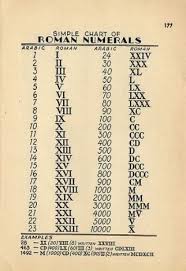 177
SIMPLE CHART OF
ROMAN NUMERALS
ARABIC ROMAN ARABIC ROMAN
1 I 24 XXIV
2 II 30 XXX
3 III 40 XL
4 IV 50 L
5 V 60 LX
6 VI 70 LXX
7 VII 80 LXXX
8 VIII 90 XC
9 IX 100 C
10 X 200 CC
11 XI 300 CCC
12 XII 400 CD
13 XIII 500 D
14 XIV 600 DC
15 XV 700 DCC
16 XVI 800 DCCC
17 XVII 900 CM
18 XVIII 1000 M
19 XIX 2000 MM
20 XX 3000 MMM
21 XXI 4000 MV̅
22 XXII 5000 V̅
23 XXIII 10000 X̅
EXAMPLES
28 - XX (20) VIII (8) WRITTEN XXVIII
463 - CD (400) LX (60) III (3) WRITTEN CDLXIII
1492 - M (1000) CD (400) XC (90) II (2) WRITTEN MCDXCII